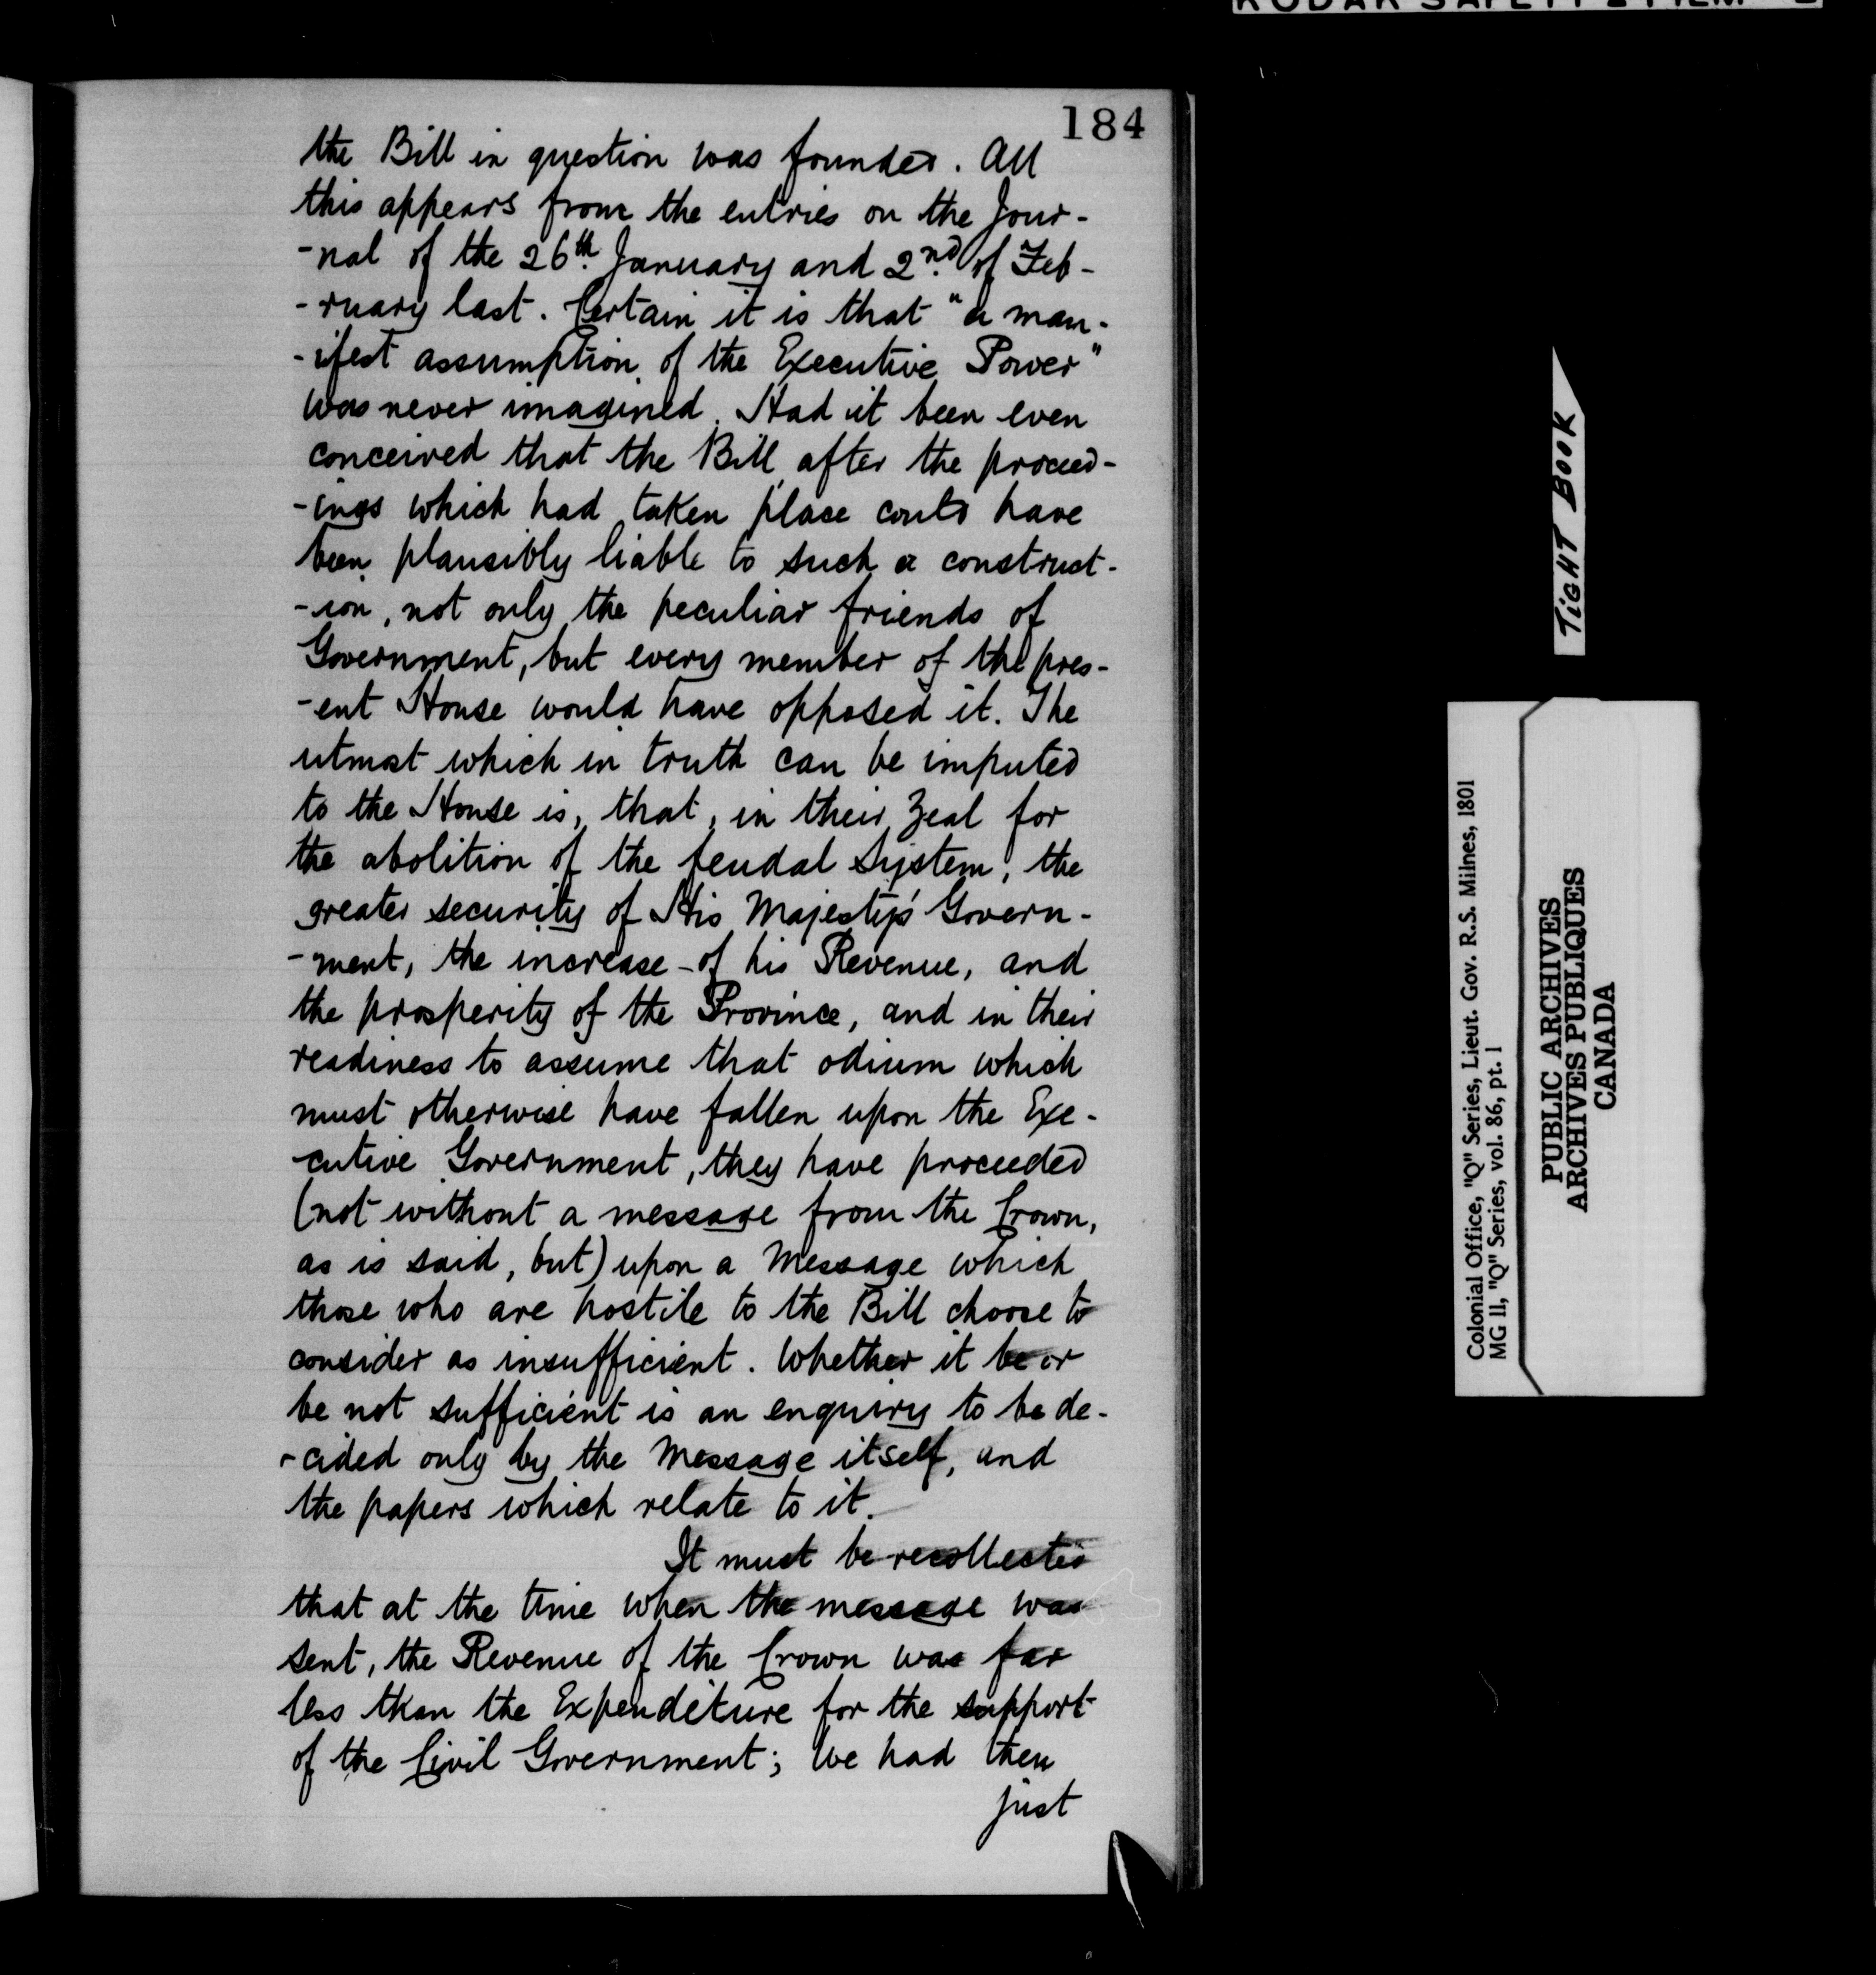 184
the Bill in question was founded. All
this appears from the entries on the Jour-
-nal of the 26th January and 2nd of Feb-
-ruary last. Certain it is that "a man-
-ifest assumption of the Executive Power"
was never imagined. Had it been even
conceived that the Bill, after the proceed-
-ings which had taken place could have
been plausibly liable to such a construct-
-ion, not only the peculiar friends of
Government, but every member of the pres-
-ent House would have opposed it. The
utmost which in truth can be imputed
to the House is, that, in their Zeal for
the abolition of the feudal System, the
greater security of His Majesty's Govern-
-ment, the increase of his Revenue, and
the prosperity of the Province, and in their
readiness to assume that odium which
must otherwise have fallen upon the Exe-
-cutive Government, they have proceeded
(not without a message from the Crown,
as is said, but) upon a Message which
those who are hostile to the Bill choose to
consider as insufficient. Whether it be or
be not sufficient is an enquiry to be de-
-cided only by the Message itself, and
the papers which relate to it.
It must be recollected
that at the time when the message was
sent, the Revenue of the Crown was far
less than the Expenditure for the support
of the Civil Government; we had then
just
TIGHT BOOK
Colonial Office, "Q" Series, Lieut. Gov. R.S. Milnes, 1801
MG 11, "Q" Series, vol. 86, pt. 1
PUBLIC ARCHIVES
ARCHIVES PUBLIQUES
CANADA